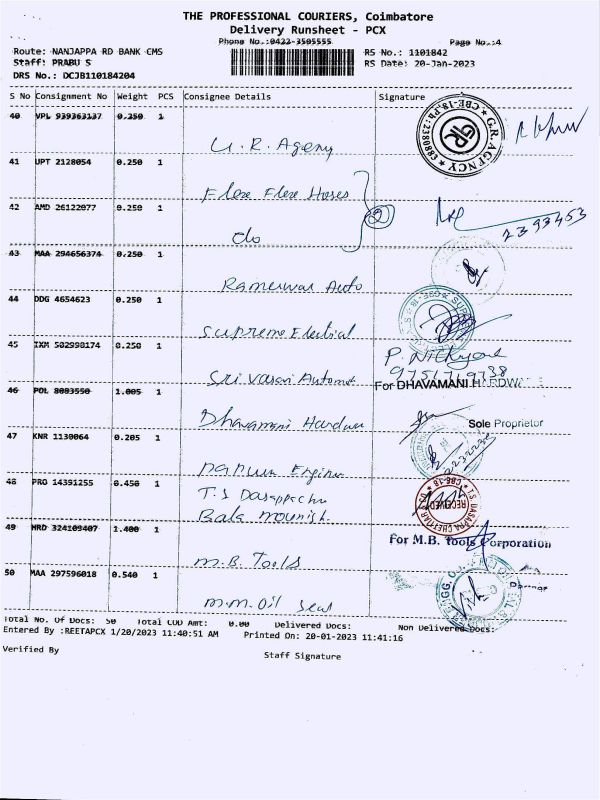 THE PROFESSIONAL COURIERS, Coimbatore
Delivery Runsheet - PCX
Phone No.:0422-3505555 Page No.:4
Route: NANJAPPA RD BANK CMS RS No.: 1101842
Staff: PRABU S RS Date: 20-Jan-2023
DRS No.: DCJB110184204
S No Consignment No Weight PCS Consignee Details Signature
40 VPL 939363137 0.250 1
U.R. Agency
G.R. AGENCY CBE-18, Ph:2380883
GR
41 UPT 2128054 0.250 1
Flexe Flexe Hoses
42 AMD 26122077 0.250 1
do
2393453
43 MAA 294656374 0.250 1
Rameswar Auto
44 DDG 4654623 0.250 1
Supreme Electrical
CBE-18
45 IXM 502990174 0.250 1
P. Nithya
9751719738
Sri Vasavi Automot
For DHAVAMANI HARDW
46 POL 8003550 1.005 1
Dhavamani Hardware
Sole Proprietor
47 KNR 1130064 0.205 1
Engine
48 PRO 14391255 0.450 1
T.S Dasappa
Bala Mounish
T.S. DASAPPA CHETTIAR
RECEIVED
CBE-18
49 HRD 324109407 1.400 1
For M.B. Tools Corporation
M.B. Tools
50 MAA 297596018 0.540 1
M.M. Oil Seal
Total No. Of Docs: 50 Total COD Amt: 0.00 Delivered Docs: Non Delivered Docs:
Entered By :REETAPCX 1/20/2023 11:40:51 AM Printed On: 20-01-2023 11:41:16
Verified By
Staff Signature